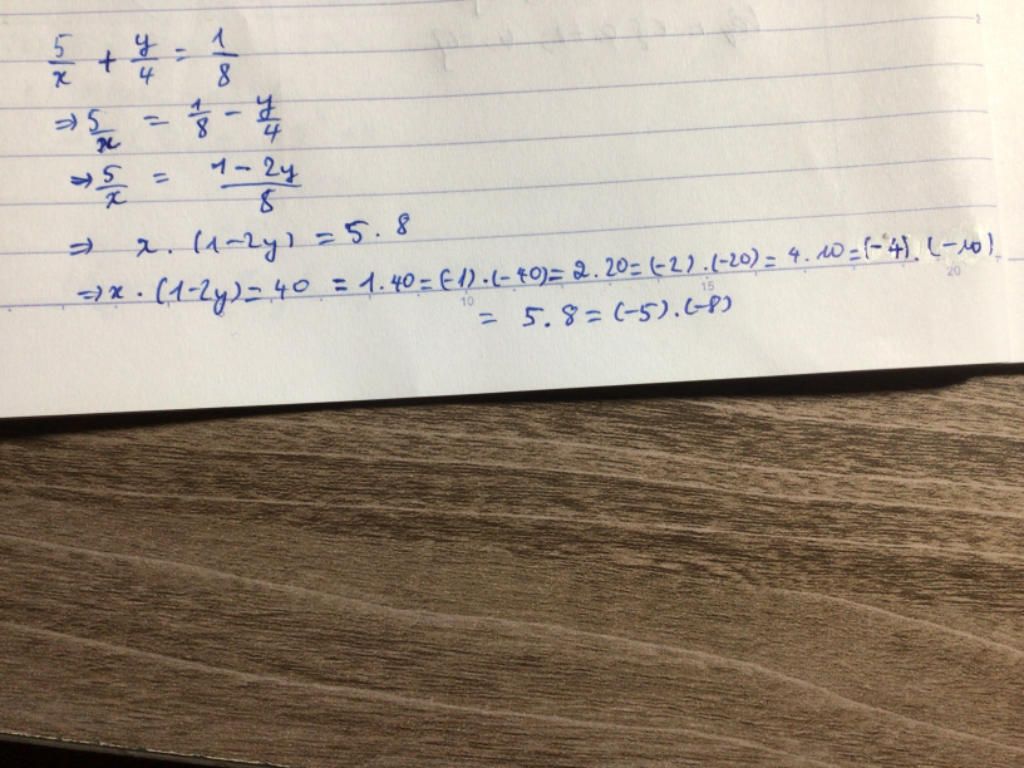 5/x + y/4 = 1/8
⇒ 5/x = 1/8 - y/4
⇒ 5/x = (1 - 2y)/8
⇒ x . (1-2y) = 5 . 8
⇒ x . (1-2y) = 40 = 1.40 = (-1).(-40) = 2.20 = (-2).(-20) = 4.10 = (-4).(-10)
= 5.8 = (-5).(-8)
10
15
20